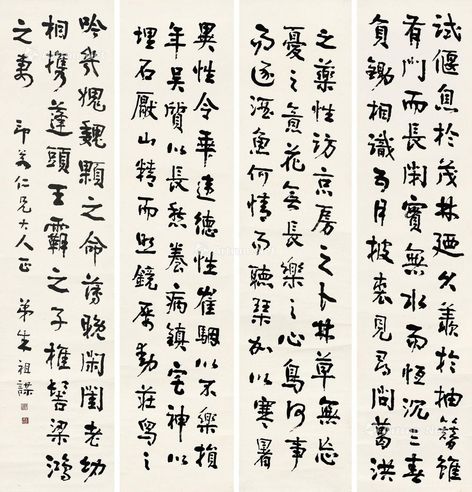 試偃息於茂林廼久羨於抽簪雖
有門而長閉實無水而恒沉三春
負鋤相識五月披裘見尋問葛洪
之藥性訪京房之卜林草無忘
憂之意花無長樂之心鳥何事
而逐酒魚何情而聽琴加以寒暑
異性令乖違德性崔駰以不樂損
年吳質以長愁養病鎮宅神以
埋石厭山精而照鏡屢動莊舄之
吟幾愧魏顆之命薄晚閑閨老幼
相攜蓬頭王霸之子椎髻梁鴻
之妻 印若仁兄大人正 弟朱祖謀